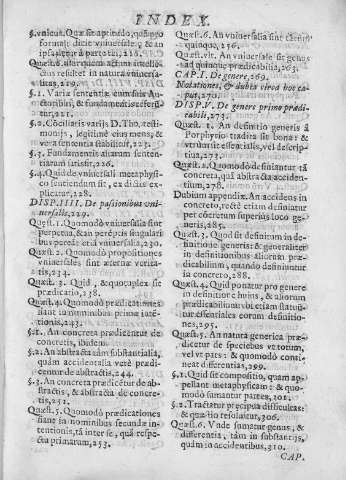 INDEX.
§. vnicus. Quæ sit aptitudo, quā ego
formaliter dicit vniuersale, & an
ipsa sit à parte rei, 218.
Quæst. 6. vtrum per actum intelle-
ctus resultet in natura vniuersa-
litas, 219.
§. 1. Varia sententiæ cum suis Au-
ctoribus, & fundamentis referū-
tur, 221.
§. 2. Cōciliatis varijs D. Tho. testi-
monijs, legitimè eius mens, & ve-
ra sententia stabilitur, 223.
§. 3. Fundamentis aliarum senten-
tiarum fit satis, 230.
§. 4. Quid de vniuersali metaphysi-
co sentiendum sit, ex dictis ex-
plicatur, 228.
DISP. IIII. De passionibus vni-
uersalis, 229.
Quæst. 1. Quomodo vniuersalia sint
perpetua, & an extinctis singulari-
bus pereat eius vniuersalia, 230.
Quæst. 2. Quomodo propositiones
vniuersales sint æternæ verita-
tis, 234.
Quæst. 3. Quid, & quotuplex sit
prædicatio, 238.
Quæst. 4. Quomodò prædicationes
fiant in nominibus primæ inté-
tionis, 243.
§. 1. An concreta prædicentur de
concretis, ibidem.
§. 2. An abstracta tàm substantialia,
quàm accidentalia verè prædi-
centur de abstractis, 244.
§. 3. An concreta prædicētur de ab-
stractis, & abstracta de concre-
tis, 252.
Quæst. 5. Quomodò prædicationes
fiant in nominibus secundæ in-
tentionis, tā inter se, quā respe-
ctu primarum, 253.
Quæst. 6. An vniuersalia sint tantùm
quinque, 256.
Quæst. vlt. An vniuersale sit genus
ad quinque prædicabilia, 263.
CAP. I. De genere, 269.
Notationes, & dubia circa hoc ca-
put, 271.
DISP. V. De genere primo prædi-
cabili, 273.
Quæst. 1. An definitio generis à
Porphyrio tradita sit bona: &
vtrum sit essentialis, vel descrip-
tiua, 273.
Quæst. 2. Quomodo definiantur tā
concreta, quā abstracta acciden-
tium, 278.
Dubium appendix. An accidens in
concreto, rectè etiam definiatur
per cōcretum superius loco ge-
neris, 285.
Quæst. 3. Quod sit definitum in de-
finitione generis: & generaliter
in definitionibus aliorum præ-
dicabilium, quando definiuntur
in concreto, 288.
Quæst. 4. Quid ponatur pro genere
in definitione huius, & aliorum
prædicabilium: vbi etiam statui-
tur essentiales eorum definitio-
nes, 295.
Quæst. 5. An natura generica præ-
dicetur de speciebus vt totum,
vel vt pars: & quomodò conti-
neat differentias, 299.
§. 1. Quid sit compositio, quam ap-
pellant metaphysicam: & quo-
modò sumantur partes, 301.
§. 2. Tractatur præcipua difficultas:
& quæstio resoluitur, 306.
Quæst. 6. Vnde sumatur genus, &
differentia, tàm in substantijs,
quàm in accidentibus, 310.
CAP.